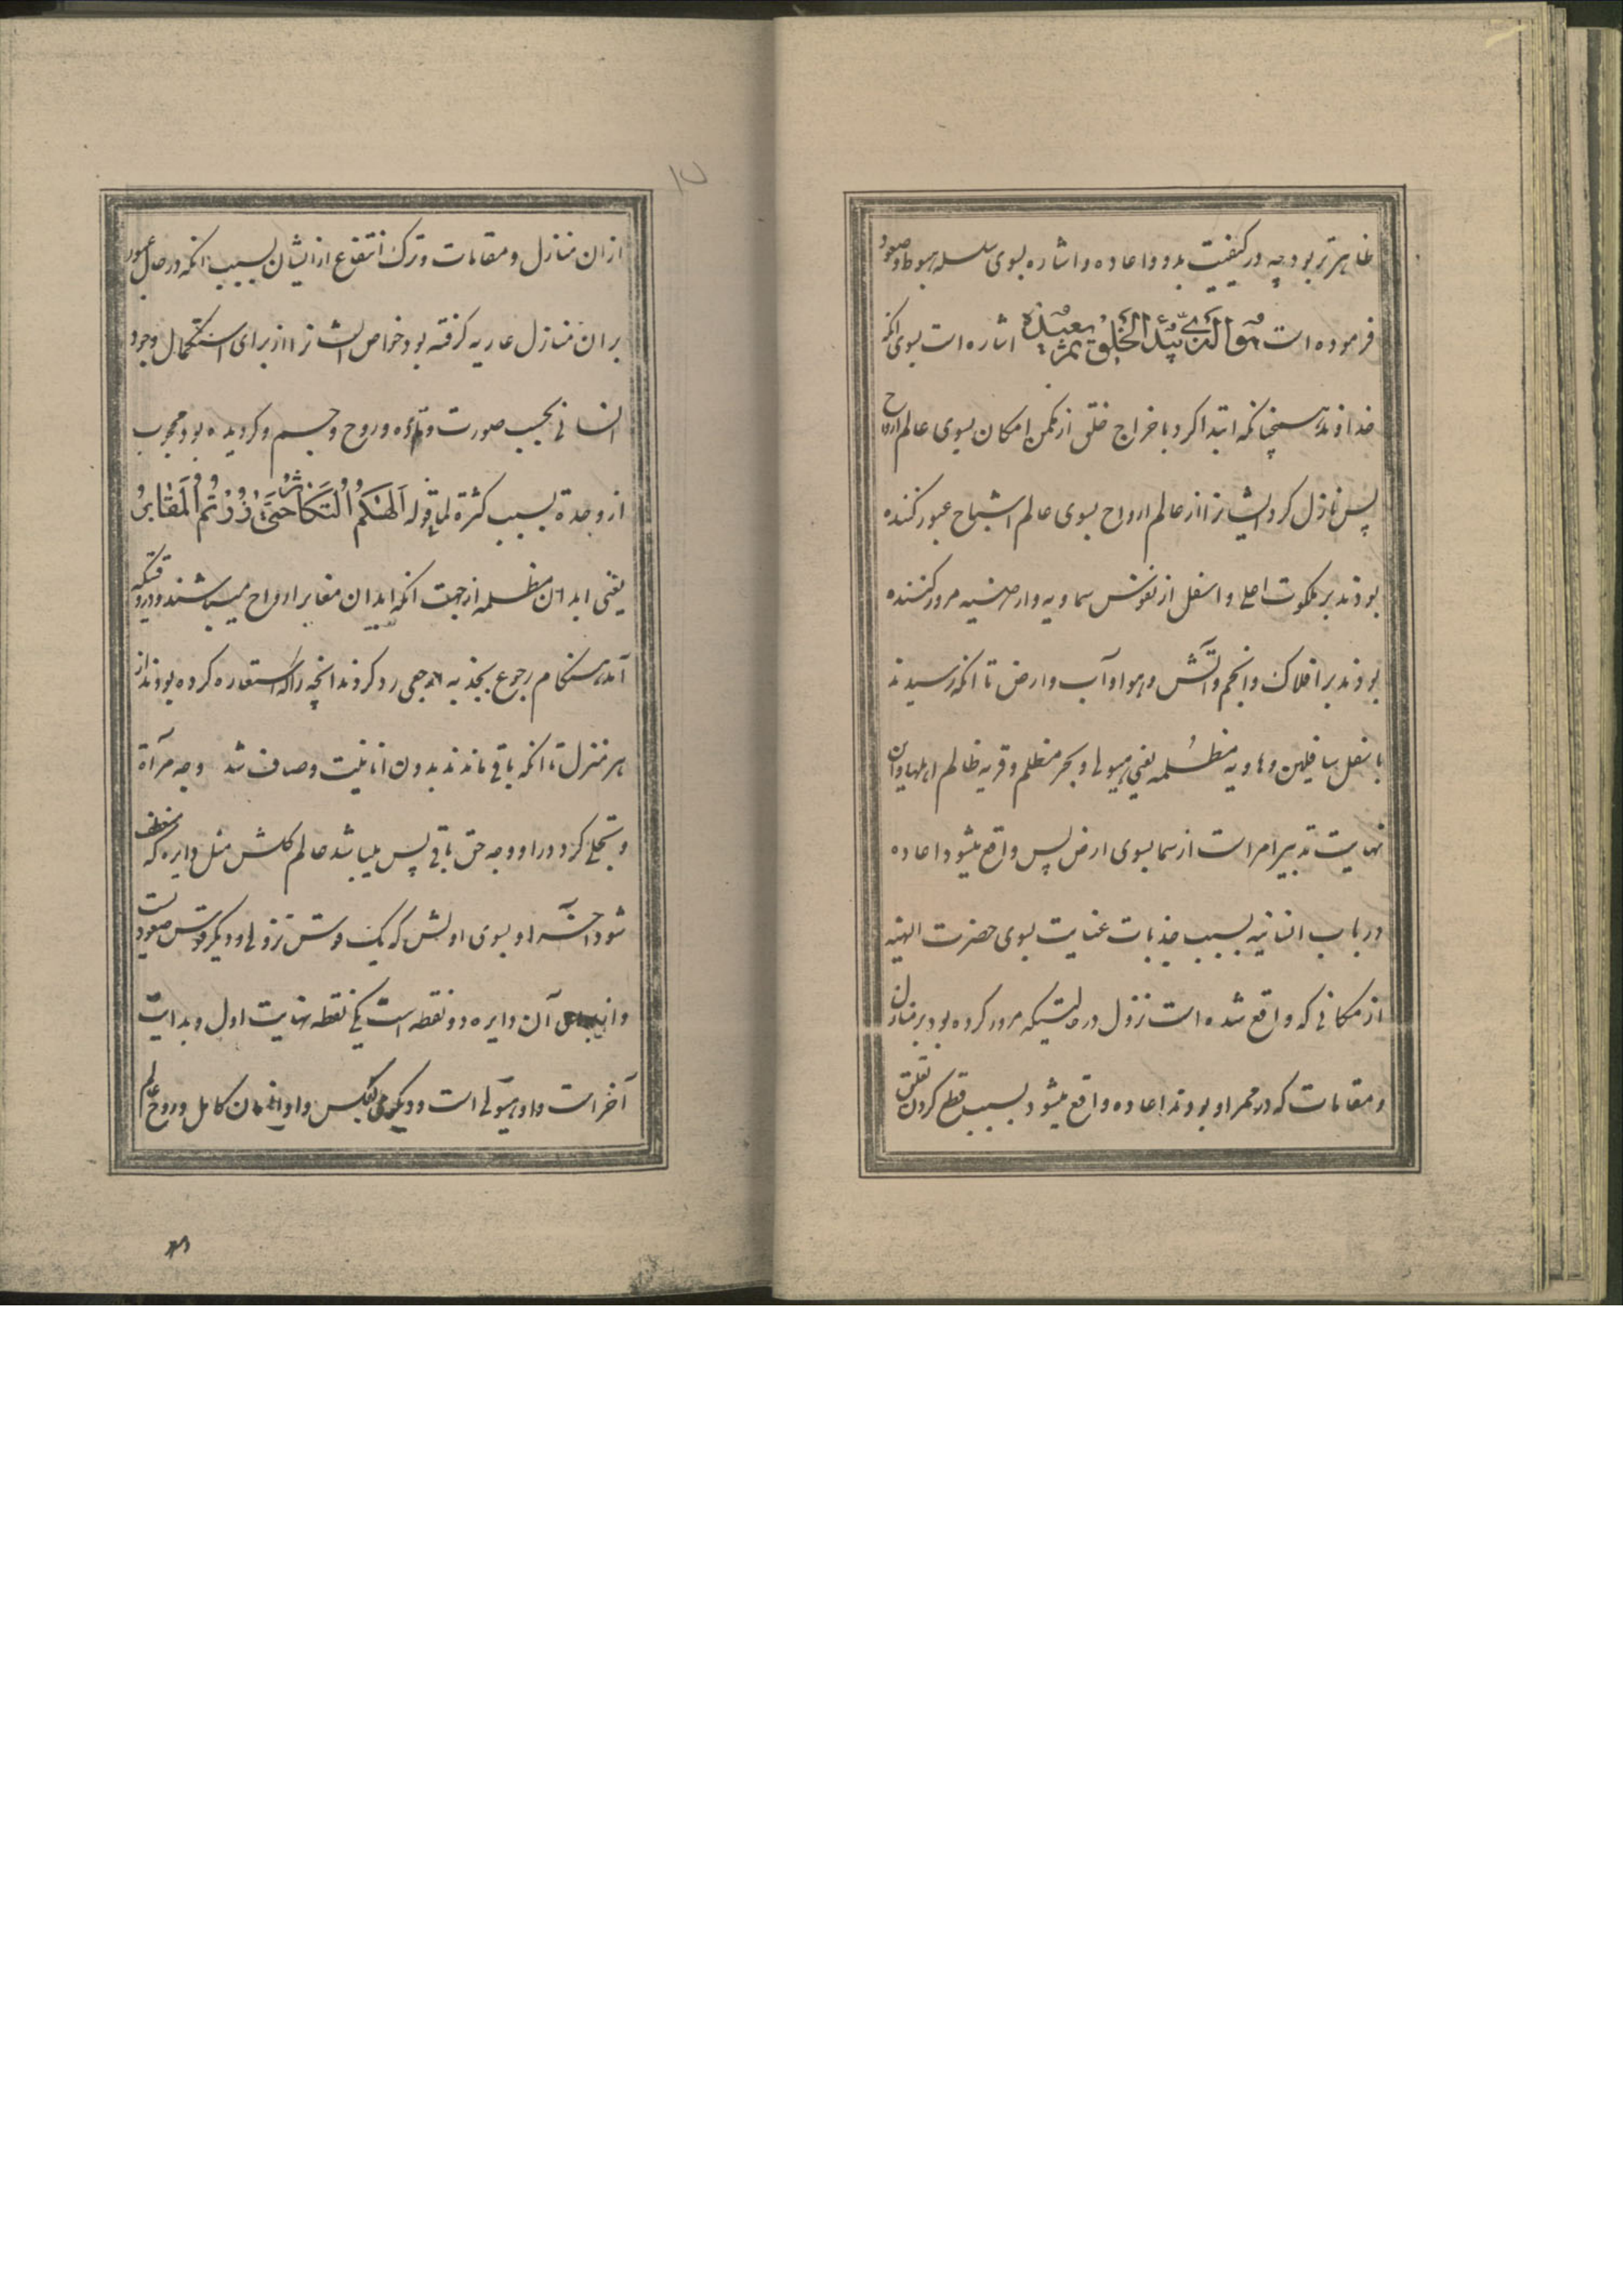 ظاهرتر بود چه در کیفیت بدو و اعاده و اشاره بسوی سلسله هبوط و صعود
فرموده است هو الذی یبدأ الخلق ثم یعیده اشاره است بسوی انکه
خداوند سبحانکه ابتدا کرد باخراج خلق از مکمن امکان بسوی عالم ارواح
پس نازل کرد ایشانرا از عالم ارواح بسوی عالم اشباح عبور کننده
بودند بر ملکوت اعلی و اسفل از نفوس سماویه و ارضیه مرور کننده
بودند بر افلاک و انجم و آتش و هوا و آب و ارض تا انکه رسیدند
باسفل سافلین و هاویه مظلمه یعنی هیولی و بحر مظلم و قریه ظالم اهلها و ان
نهایت تدبیر امر است از سما بسوی ارض پس واقع میشود اعاده
در باب انسانیه بسبب جذبات عنایت بسوی حضرت الهیه
از مکانی که واقع شده است نزول در حالتیکه مرور کرده بود بر منازل
و مقامات که در ممر او بودند اعاده واقع میشود بسبب قطع کردن تعلق
۱۷
از ان منازل و مقامات و ترک انتفاع از ایشان بسبب انکه در حال عبور
بر ان منازل عاریه گرفته بود خواص ایشانرا از برای استکمال وجود
انسانی بحسب صورت و ماده و روح و جسم و کردیده بود محجوب
از وحدة بسبب کثرة لما قوله الهیکم التکاثر حتی زرتم المقابر
یعنی ابدان مظلمه از جهت انکه ابدان مقابر ارواح میباشند و در وقتیکه
آمد هنکام رجوع بجذبه ارجعی رد کردند انچه را که استعاره کرده بودند از
هر منزل تا انکه باقی ماندند بدون انانیت و صاف شد وجه مرآة
و تجلی کرد در او وجه حق باقی پس میباشد عالم کلش مثل دایره که منعطف
شود آخر او بسوی اولش که یک قوس نزولی و دیکر قوس صعودیست
و آن دایره دو نقطه است یکی نقطه نهایت اول و بدایت
آخر است و او هیولی است و دیکری بعکس و او انسان کامل و روح عالم